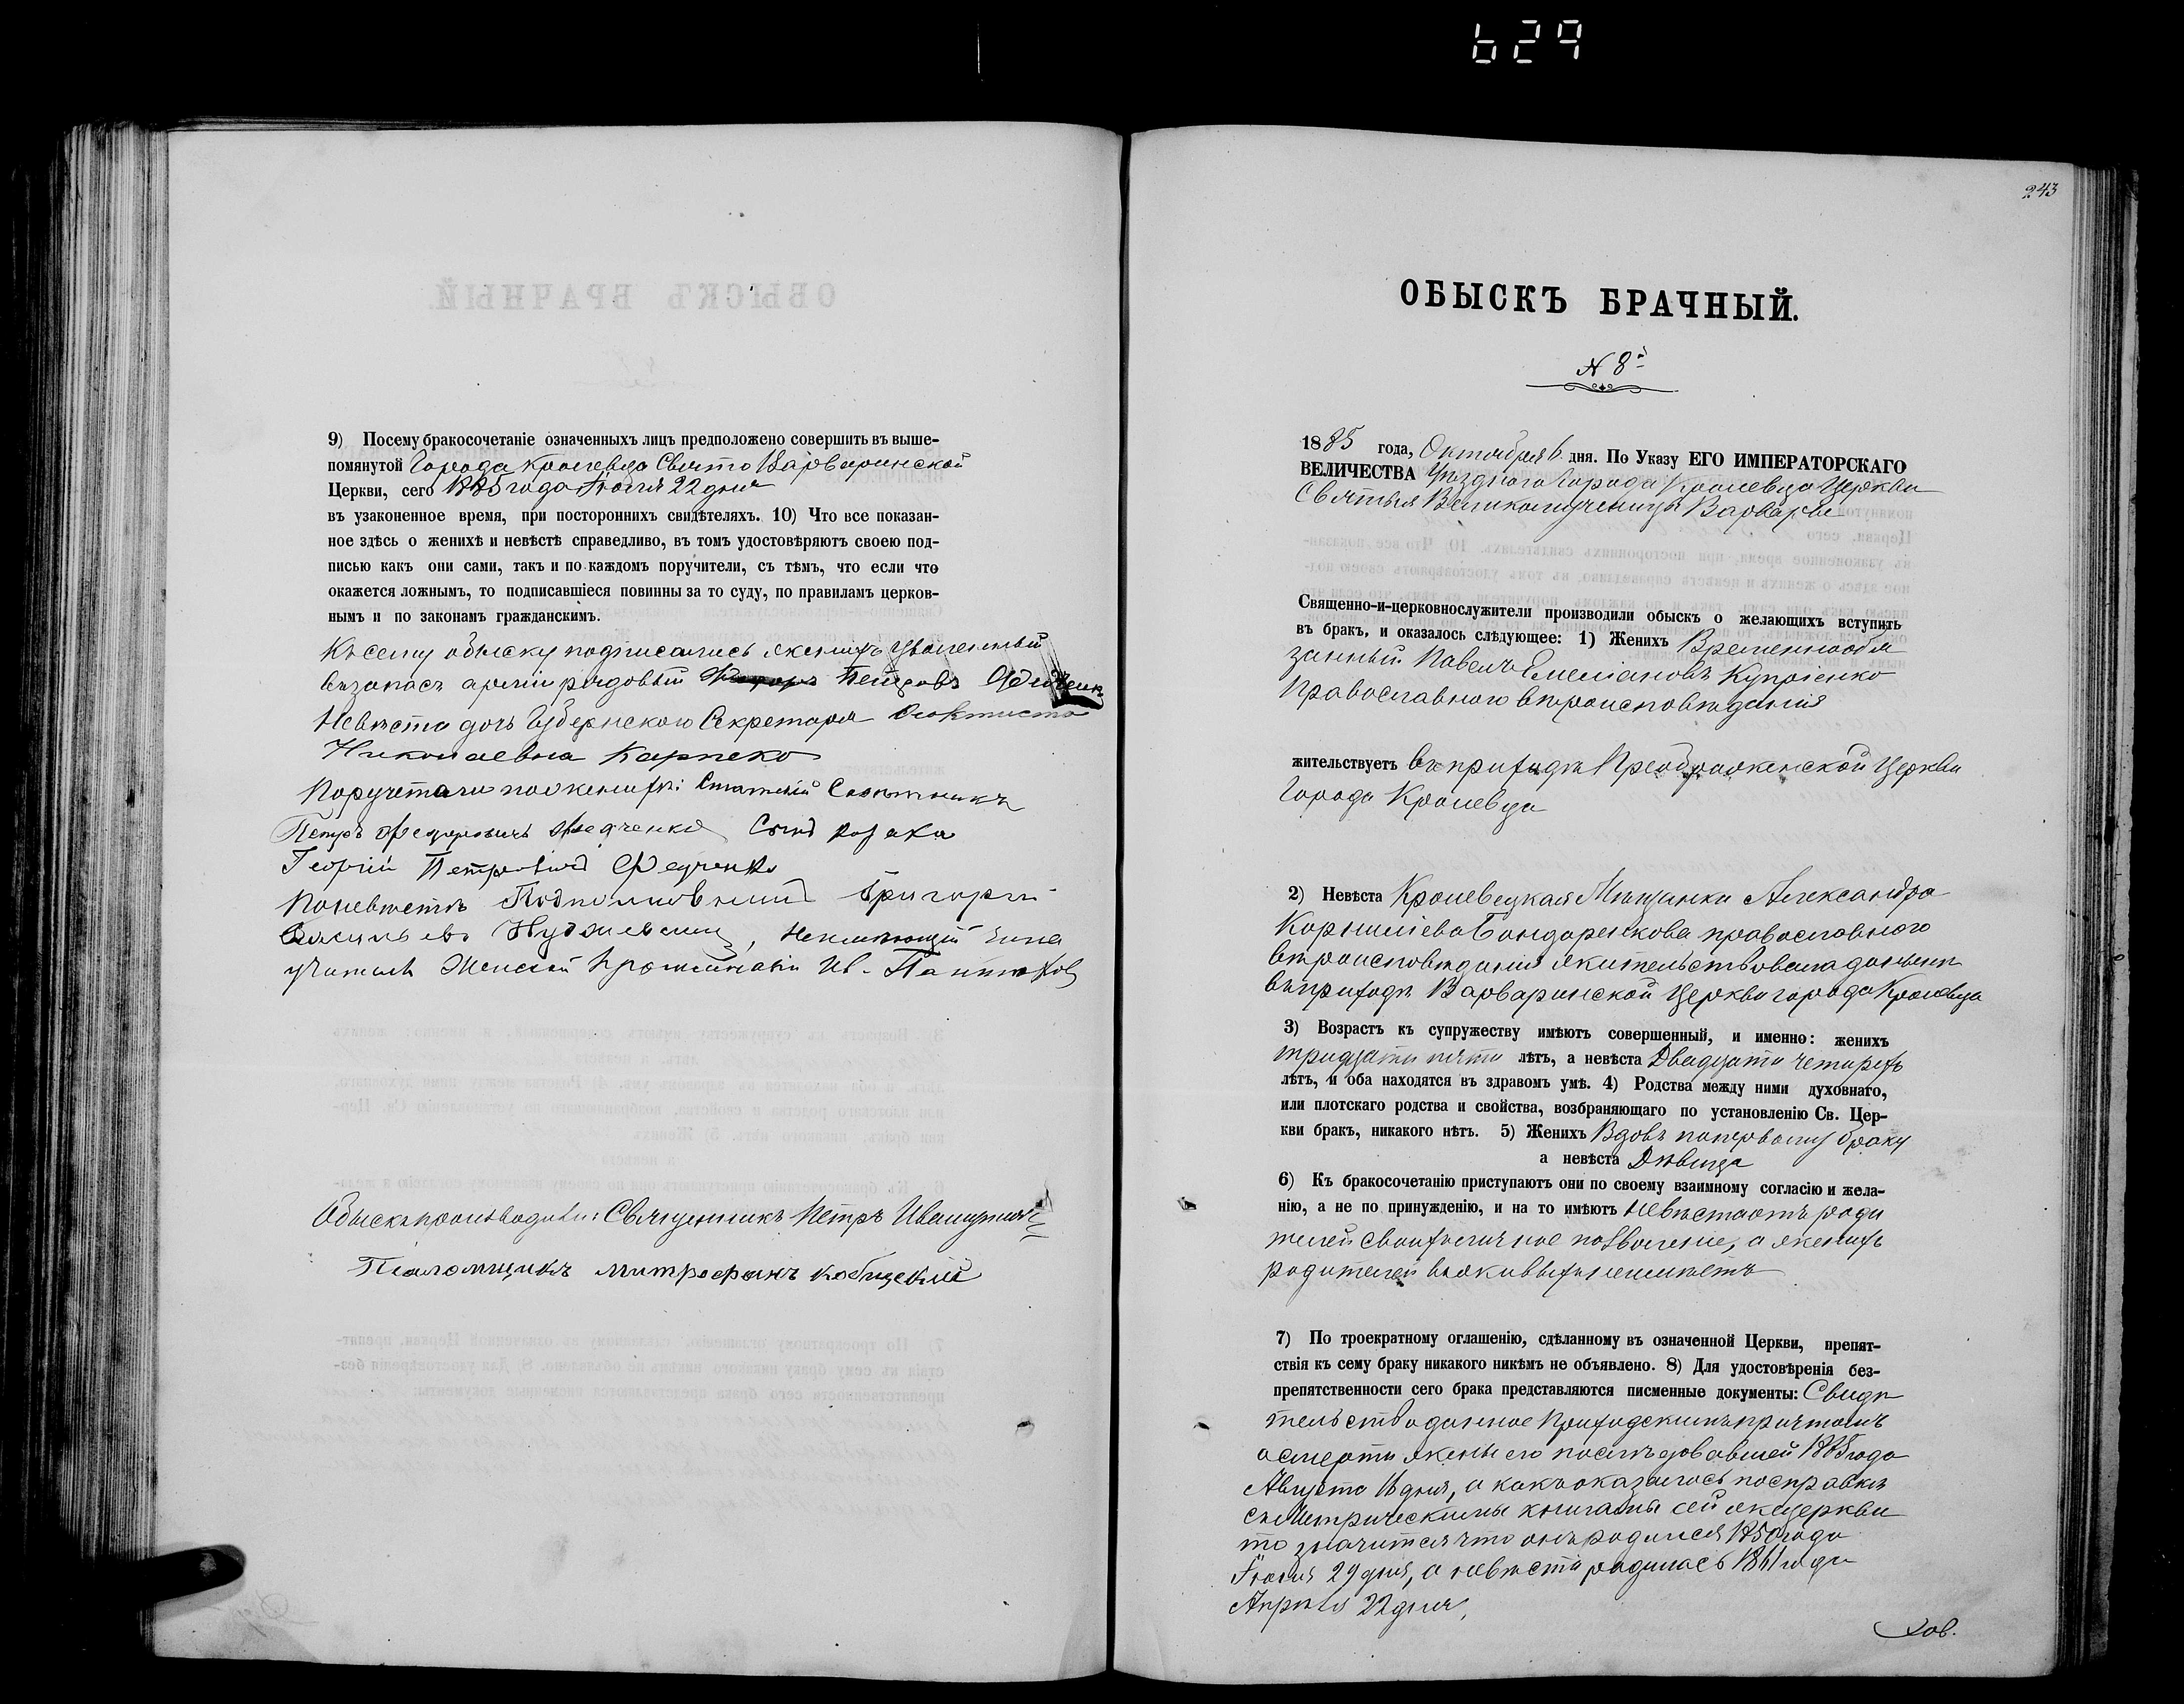 629
9) Посему бракосочетаніе означенныхъ лицъ предположено совершить въ выше-
помянутой Города Кролевца Свято Варваринской
Церкви, сего 1885 года Іюля 22 дня
въ узаконенное время, при постороннихъ свидѣтеляхъ. 10) Что все показан-
ное здѣсь о женихѣ и невѣстѣ справедливо, въ томъ удостовѣряютъ своею под-
писью какъ они сами, такъ и по каждомъ поручители, съ тѣмъ, что если что
окажется ложнымъ, то подписавшіеся повинны за то суду, по правиламъ церков-
нымъ и по законамъ гражданскимъ.
Къ сему обыску подписались женихъ уволенный
въ запасъ арміи рядовый Петровъ
Невѣста дочь Губернского Секретаря Феоктиста
Николаевна Карпеко
Поручители по женихѣ: Статскій Совѣтникъ
Петръ Федоровичъ Федченко Сынъ козака
Георгій Петровичъ Федченко
По невѣстѣ Григорій
Васильевъ, неимѣющій чина
учитель Женской Ив.
Обыскъ производили: Священникъ Петръ
Псаломщикъ Митрофанъ Кобищскій
243
ОБЫСКЪ БРАЧНЫЙ.
N 8й
1885 года, Октября 6 дня. По Указу ЕГО ИМПЕРАТОРСКАГО
ВЕЛИЧЕСТВА Уѣздного Города Кролевца Церкви
Святыя Великомученицы Варвары
Священно-и-церковнослужители производили обыскъ о желающихъ вступить
въ бракъ, и оказалось слѣдующее: 1) Женихъ Временнообя
занный Павелъ Емеліановъ Купріенко
Православного вѣроисповѣданія
жительствуетъ въ приходѣ Преображенской Церкви
Города Кролевца
2) Невѣста Кролевецкая Мѣщанка Александра
Корниліева Бондаренкова православного
вѣроисповѣданія жительствовала донынѣ
въ приходѣ Варваринской Церкви города Кролевца
3) Возрастъ къ супружеству имѣютъ совершенный, и именно: женихъ
тридцати пяти лѣтъ, а невѣста Двадцати четырехъ
лѣтъ, и оба находятся въ здравомъ умѣ. 4) Родства между ними духовнаго,
или плотскаго родства и свойства, возбраняющаго по установленію Св. Цер-
кви бракъ, никакого нѣтъ. 5) Женихъ Вдовъ по первому браку
а невѣста Дѣвица
6) Къ бракосочетанію приступаютъ они по своему взаимному согласію и жела-
нію, а не по принужденію, и на то имѣютъ невѣста отъ роди
телей своихъ личное позволеніе, а женихъ
родителей въ живыхъ неимѣетъ
7) По троекратному оглашенію, сдѣланному въ означенной Церкви, препят-
ствія къ сему браку никакого никѣмъ не объявлено. 8) Для удостовѣренія без-
препятственности сего брака представляются писменные документы: Свидѣ
тельство данное Приходскимъ причтомъ
о смерти жены его послѣдовавшей 1885 года
Августа 16 дня, а какъ оказалось по справкѣ
съ Метрическими книгами сей же церкви
то значится что онъ родился 1850 года
Іюня 29 дня, а невѣста родилась 1861 года
Апрѣля 22 дня,